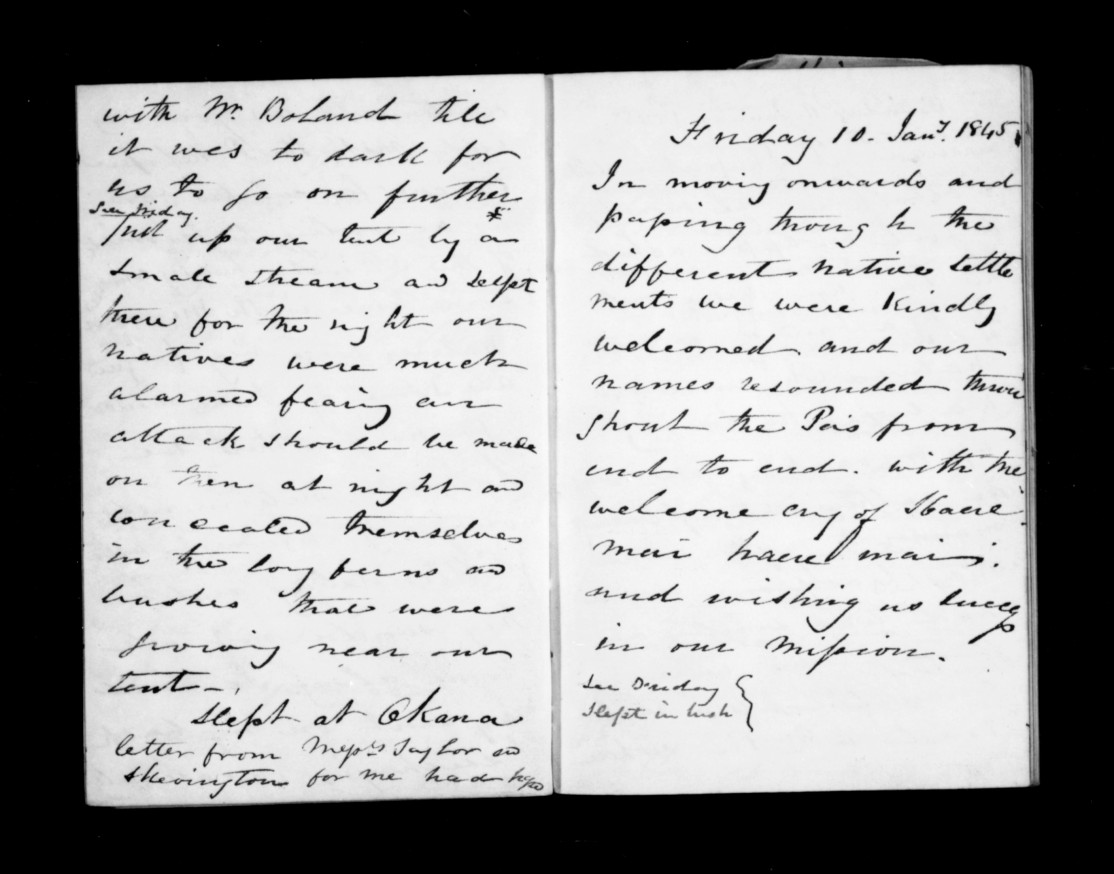 with Mr. Boland tile
it wes to dark for
us to go on further
See Friday. *
Put up our tent by a
smale stream and selpt
there for the night our
natives were much
alarmed fearing an
attack should be made
on them at night and
concealed themselves
in the long ferns and
bushes that were
growing near our
tent -.
slept at Okana
letter from Messrs Taylor and
Skevington for me had
Friday 10. Jany. 1845
In moving onwards and
passing throug h the
different native settle
ments we were Kindly
welcomed and our
names resounded throu
ghout the Pas from
end to end. with the
welcome cry of Haere
mai haere mai.
and wishing us success
in our Mission.
See Friday }
slept in bush